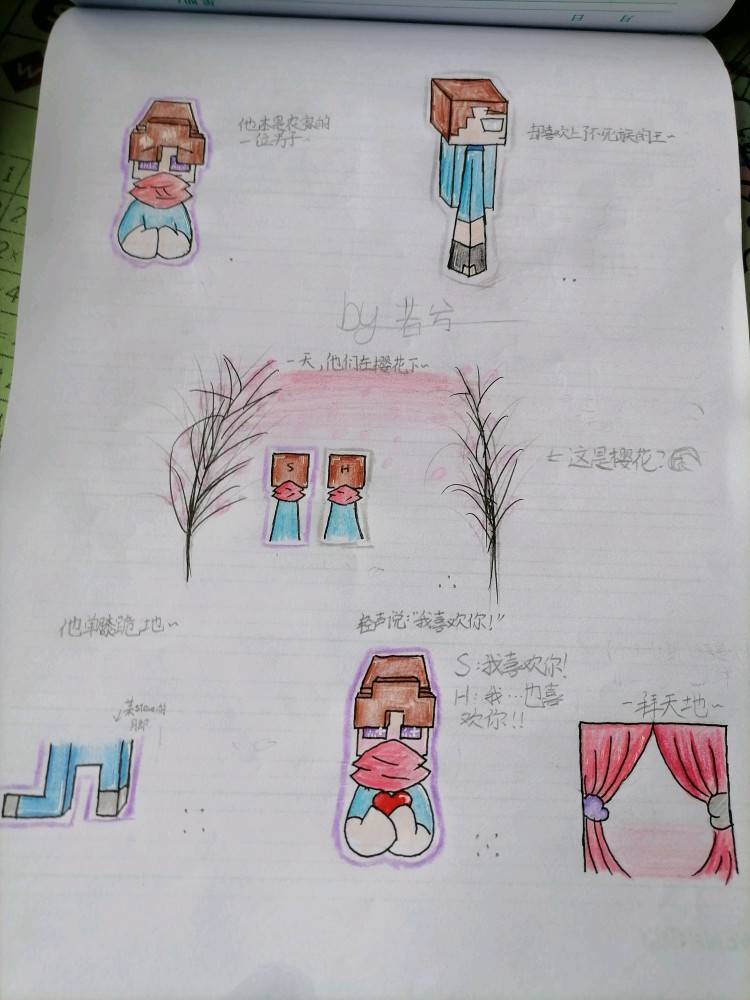 月 日
他本是农家的
一位男子.
却喜欢上了不死族的王~
by 若兮
一天,他们在樱花下~
S
H
←这是樱花?
他单膝跪地~
某steve的
脚
轻声说:"我喜欢你!"
S:我喜欢你!
H:我…也喜
欢你!!
一拜天地~